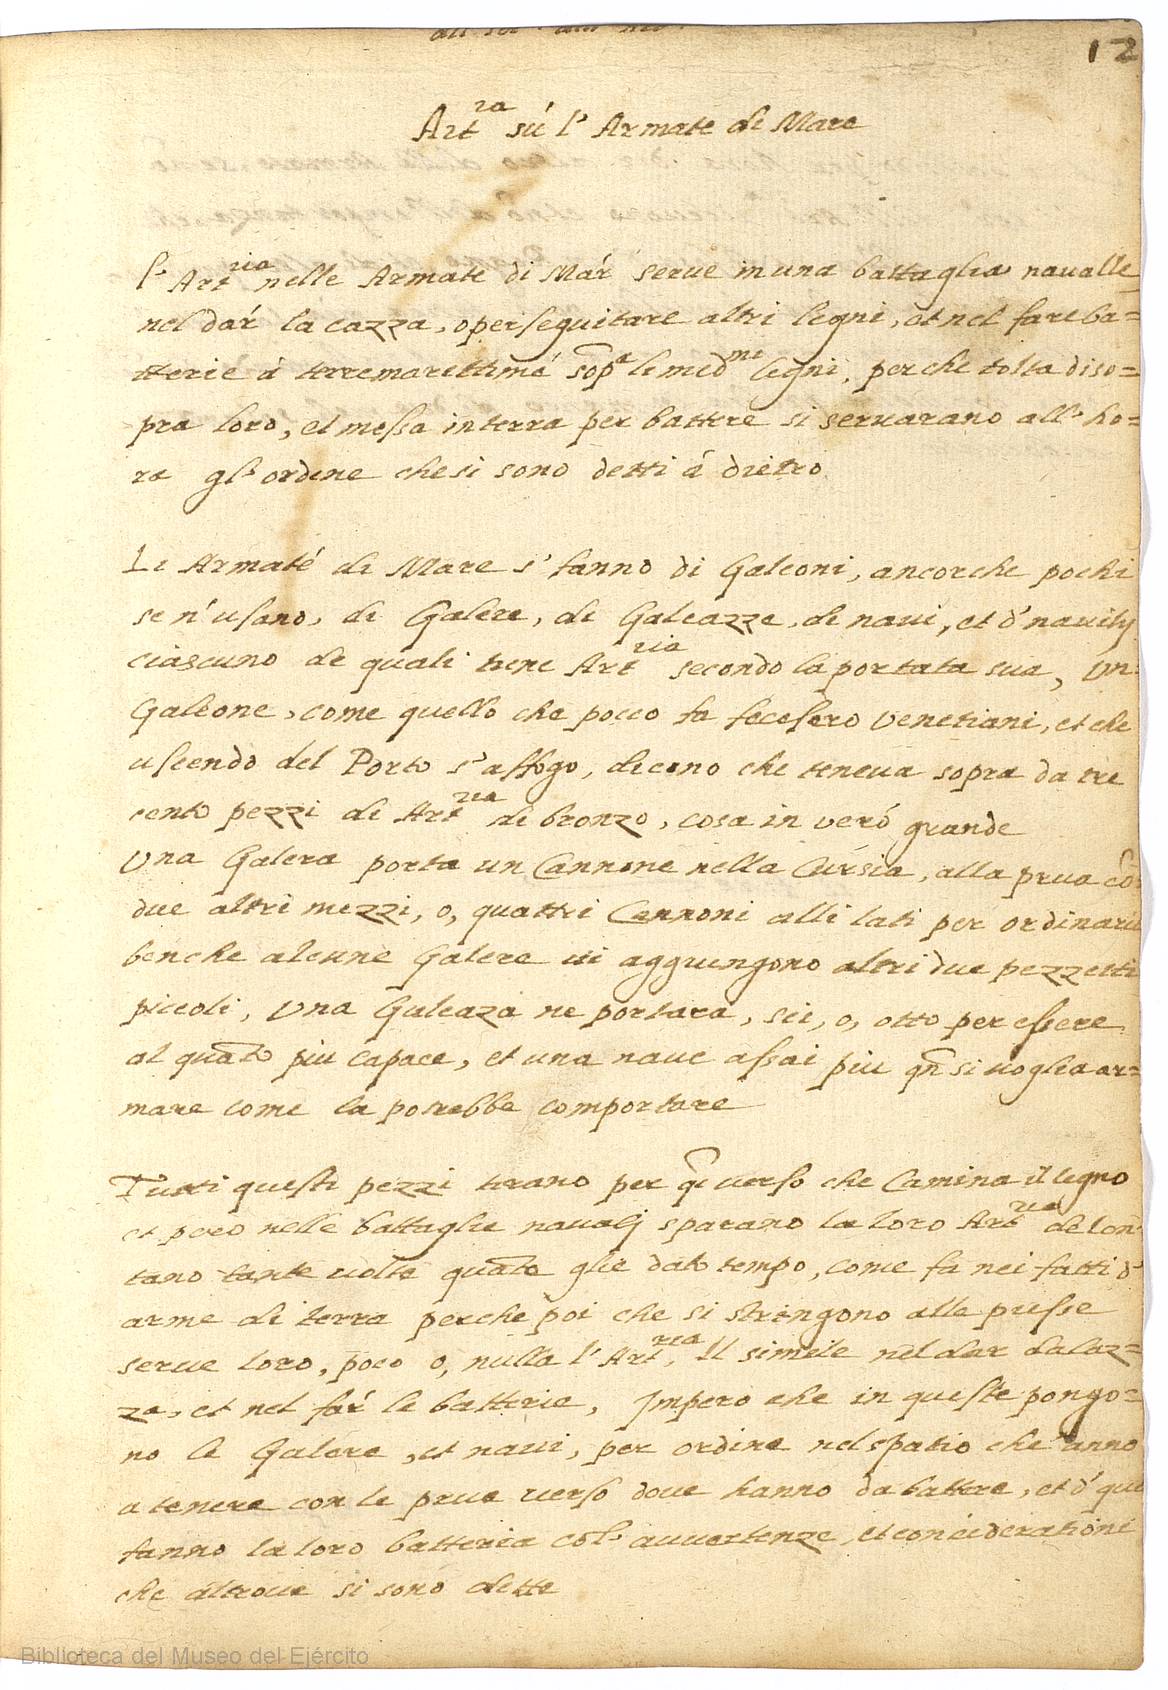 12
Art.ra sù l' Armate di Mare
l' Art.ria nelle Armate di Már serue in una battaglia naualle
nel dár la cazza, o perseguitare altri legni, et nel fare ba=
tterie á terre marettime sop.a le med.me legni, perche tolta diso=
pra loro, et messa in terra per battere si seruarano all' ho=
ra gl' ordine che si sono detti á dietro
Le Armaté di Mare s' fanno di Galeoni, ancorche pochi
se n' usano, di Galere, di Galeazze, di naui, et d' nauilij
ciascuno de quali tiene Art.ria secondo la portata sua, Un
Galeone, come quello che pocco fa feceßero Venetiani, et che
uscendo del Porto s' affogo, dicono che teneua sopra da tre
cento pezzi di Art.ria di bronzo, cosa in veró grande
Una Galera porta un Cannone nella Cursia, alla prua co
due altri mezzi, o, quattri Cannoni alli lati per ordinario
benche alcune Galere ui aggiungono altri due pezzetti
piccoli, Una Galeaza ne portara, sei, o, otto per eßere
al quanto piu capace, et una naue aßai piu qn si uoglia ar=
mare come la potrebbe comportare
Tutti questi pezzi tirano per q̃l uerso che Camina il legno
et pero nelle battaglie naualj sparano la loro Art.ria de lon
tano tante uolte quato glie dato tempo, come fa nei fatti d'
arme di terra perche poi che si stringono alle preße
serue loro, poco o, nulla l' Art.ria, Il simile nel dar la Caz=
za, et nel fár le batterie, Impero che in queste pongo=
no le Galere, et naui, per ordine nel spatio che anno
a tenere con le prue uerso doue hanno da battere, et d' qui
fanno la loro batteria col' auuertenze, et considerationi
che altroue si sono dette
Biblioteca del Museo del Ejército